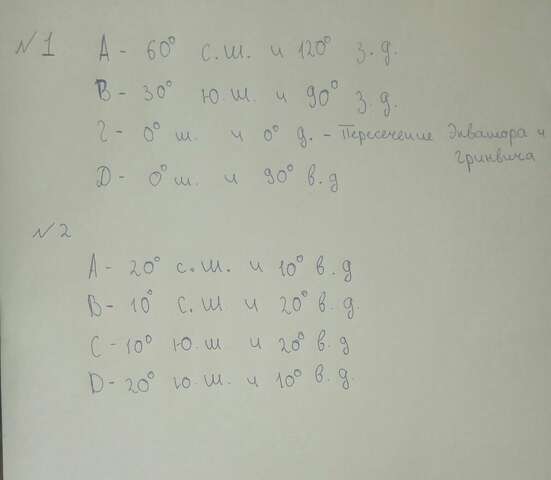 №1 A - 60° с.ш. и 120° з.д.
B - 30° ю.ш. и 90° з.д.
C - 0° ш. и 0° д. - Пересечение Экватора и
Гринвича
D - 0° ш. и 90° в.д
№2
A - 20° с.ш. и 10° в.д
B - 10° с.ш и 20° в.д.
C - 10° ю.ш и 20° в.д
D - 20° ю.ш. и 10° в.д.